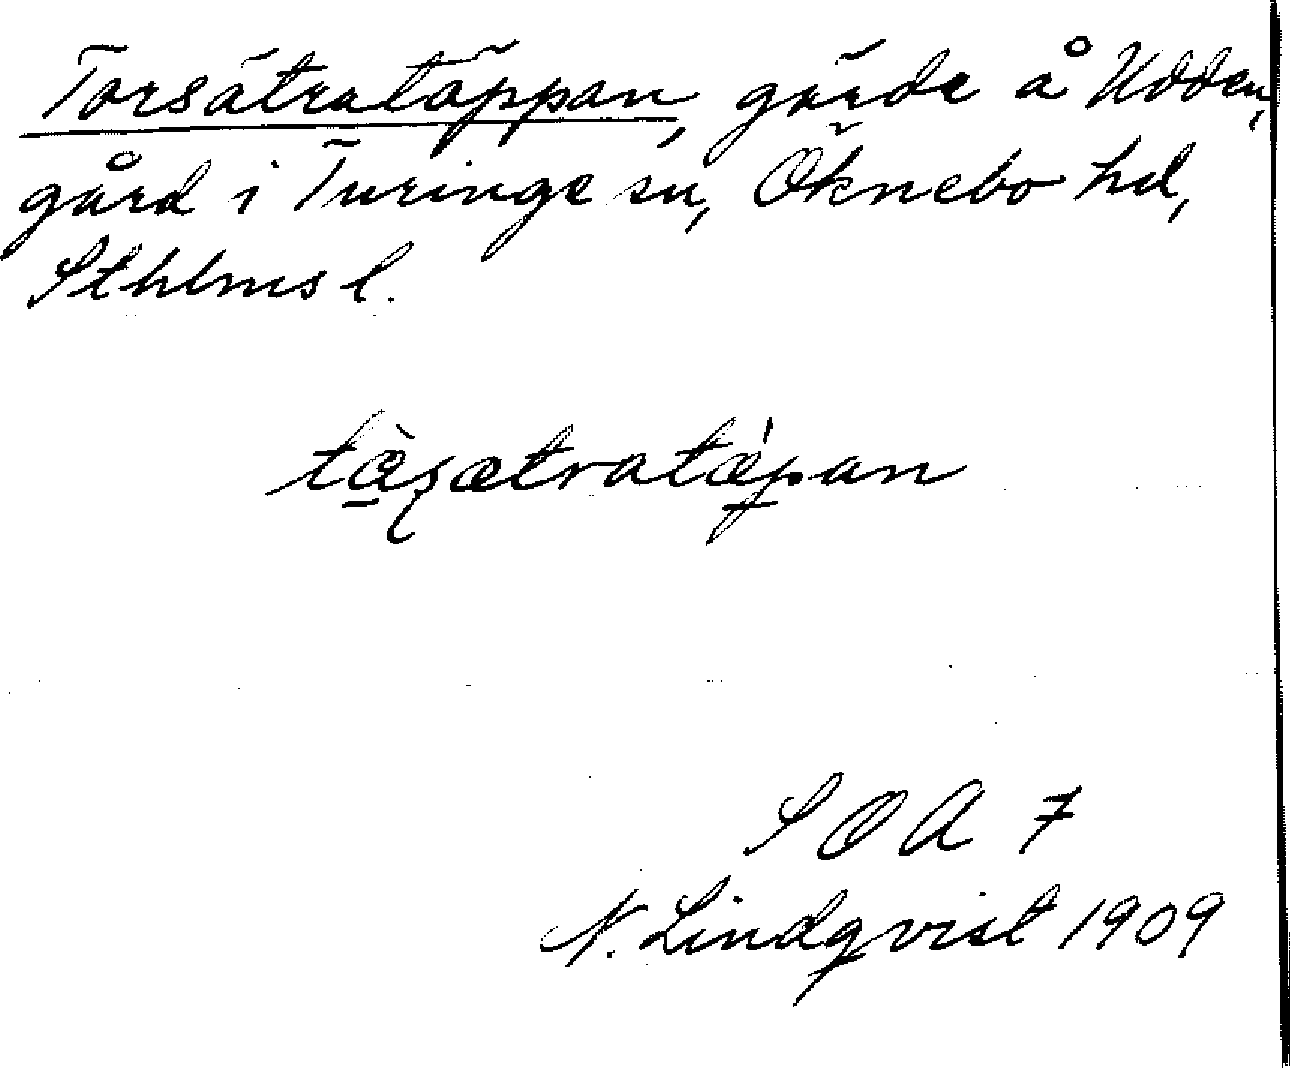 Torsätratäppan, gärde å Udden,
gård i Turinge sn, Öknebo hd,
Sthlms l.
tæ̀ʂætratǽpan
SOA 7
N. Lindqvist 1909